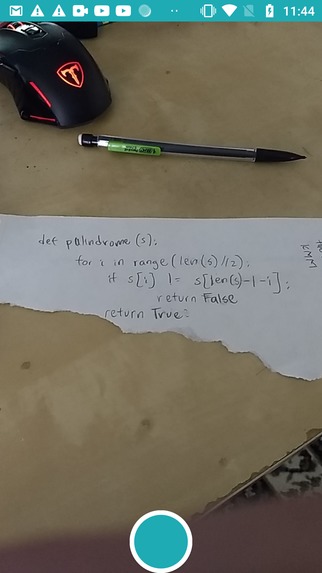 11:44
def palindrome (s):
for i in range (len(s)//2):
if s[i] != s[len(s)-1-i]:
return False
return True